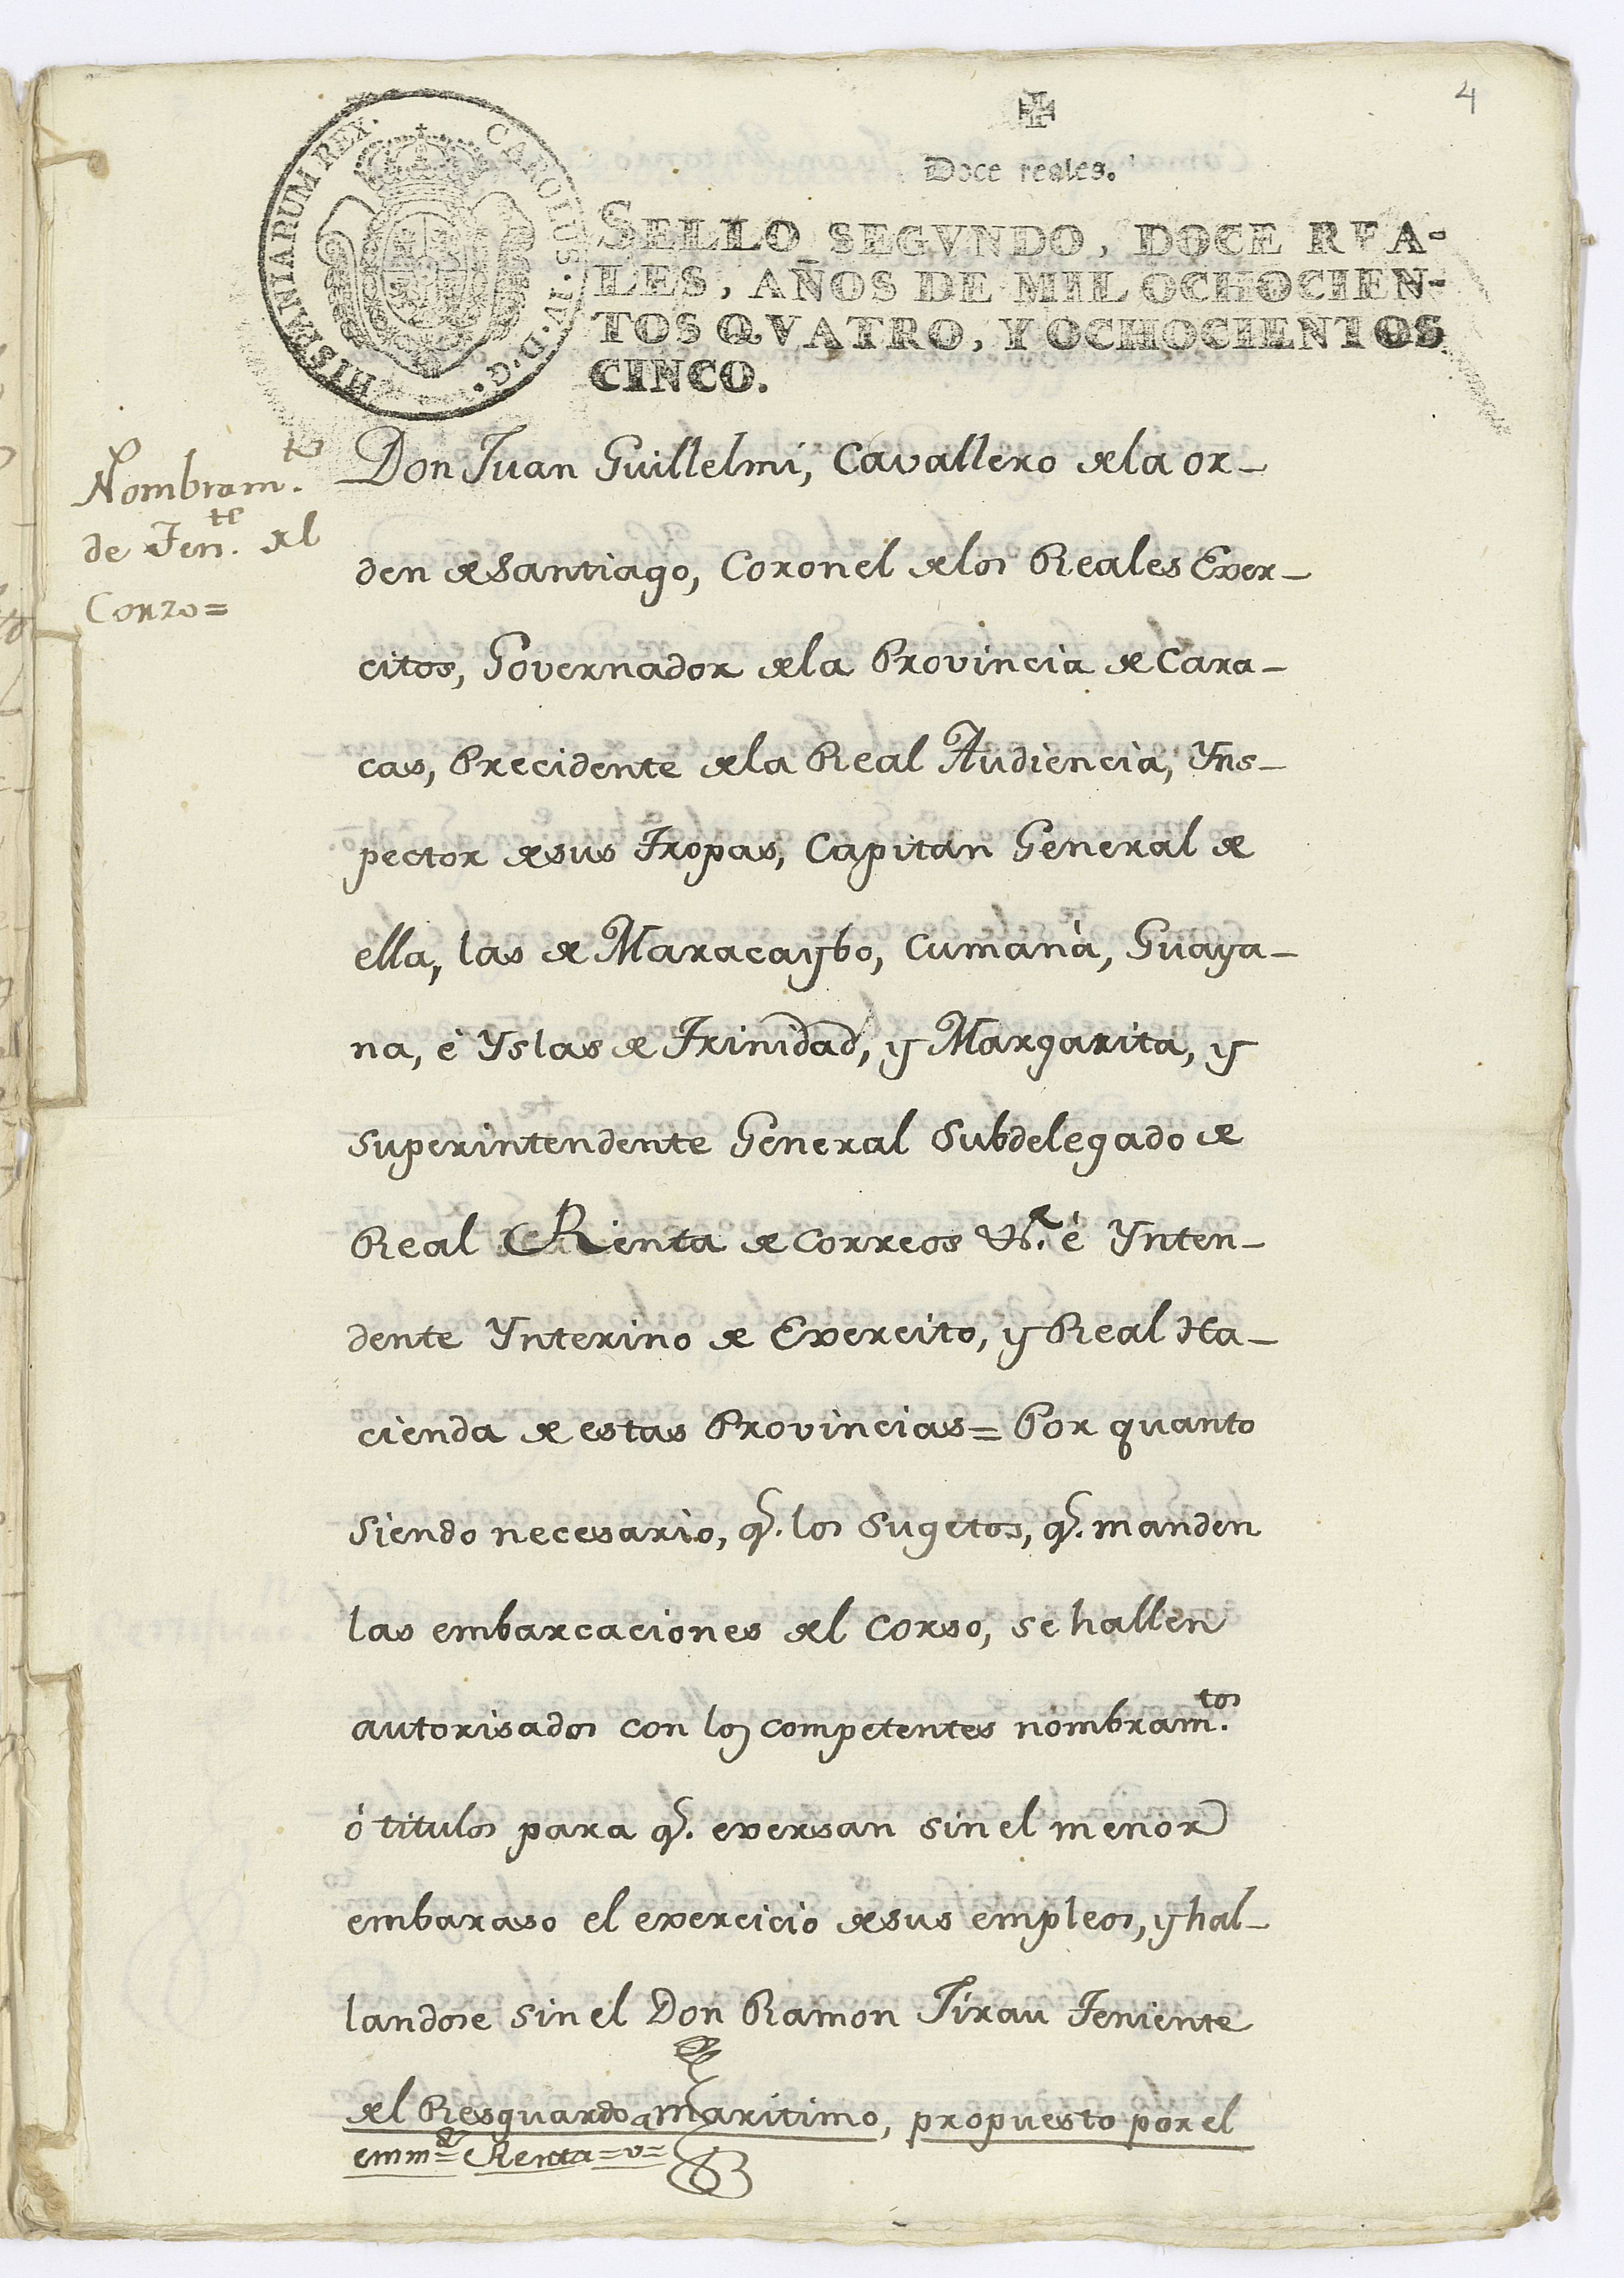 4
Doce reales.
HISPANIARUM REX. CAROLUS IV. D. G.
SELLO SEGVNDO, DOCE REA-
LES, AÑOS DE MIL OCHOCIEN-
TOS QVATRO, Y OCHOCIENTOS
CINCO.
Nombram.to
de Ten.te del
Corzo=
Don Juan Guillelmi, Cavallero de la or-
den de Santiago, Coronel de los Reales Exer-
citos, Governador de la Provincia de Cara-
cas, Precidente de la Real Audiencia, Yns-
pector de sus Tropas, Capitan General de
ella, las de Maracaybo, Cumaná, Guaya-
na, é Yslas de Trinidad, y Margarita, y
superintendente General Subdelegado de
Real Renta de Correos &.a é Ynten-
dente Ynterino de Exercito, y Real Ha-
cienda de estas Provincias= Por quanto
siendo necesario, q.e los sugetos, q.e manden
las embarcaciones del corso, se hallen
autorisados con los competentes nombram.tos
ó titulos para q.e exersan sin el menor
embaraso el exercicio de sus empleos, y hal-
landose sin el Don Ramon Tirau Teniente
del Resguardo maritimo, propuesto por el
emm.do Renta=v=